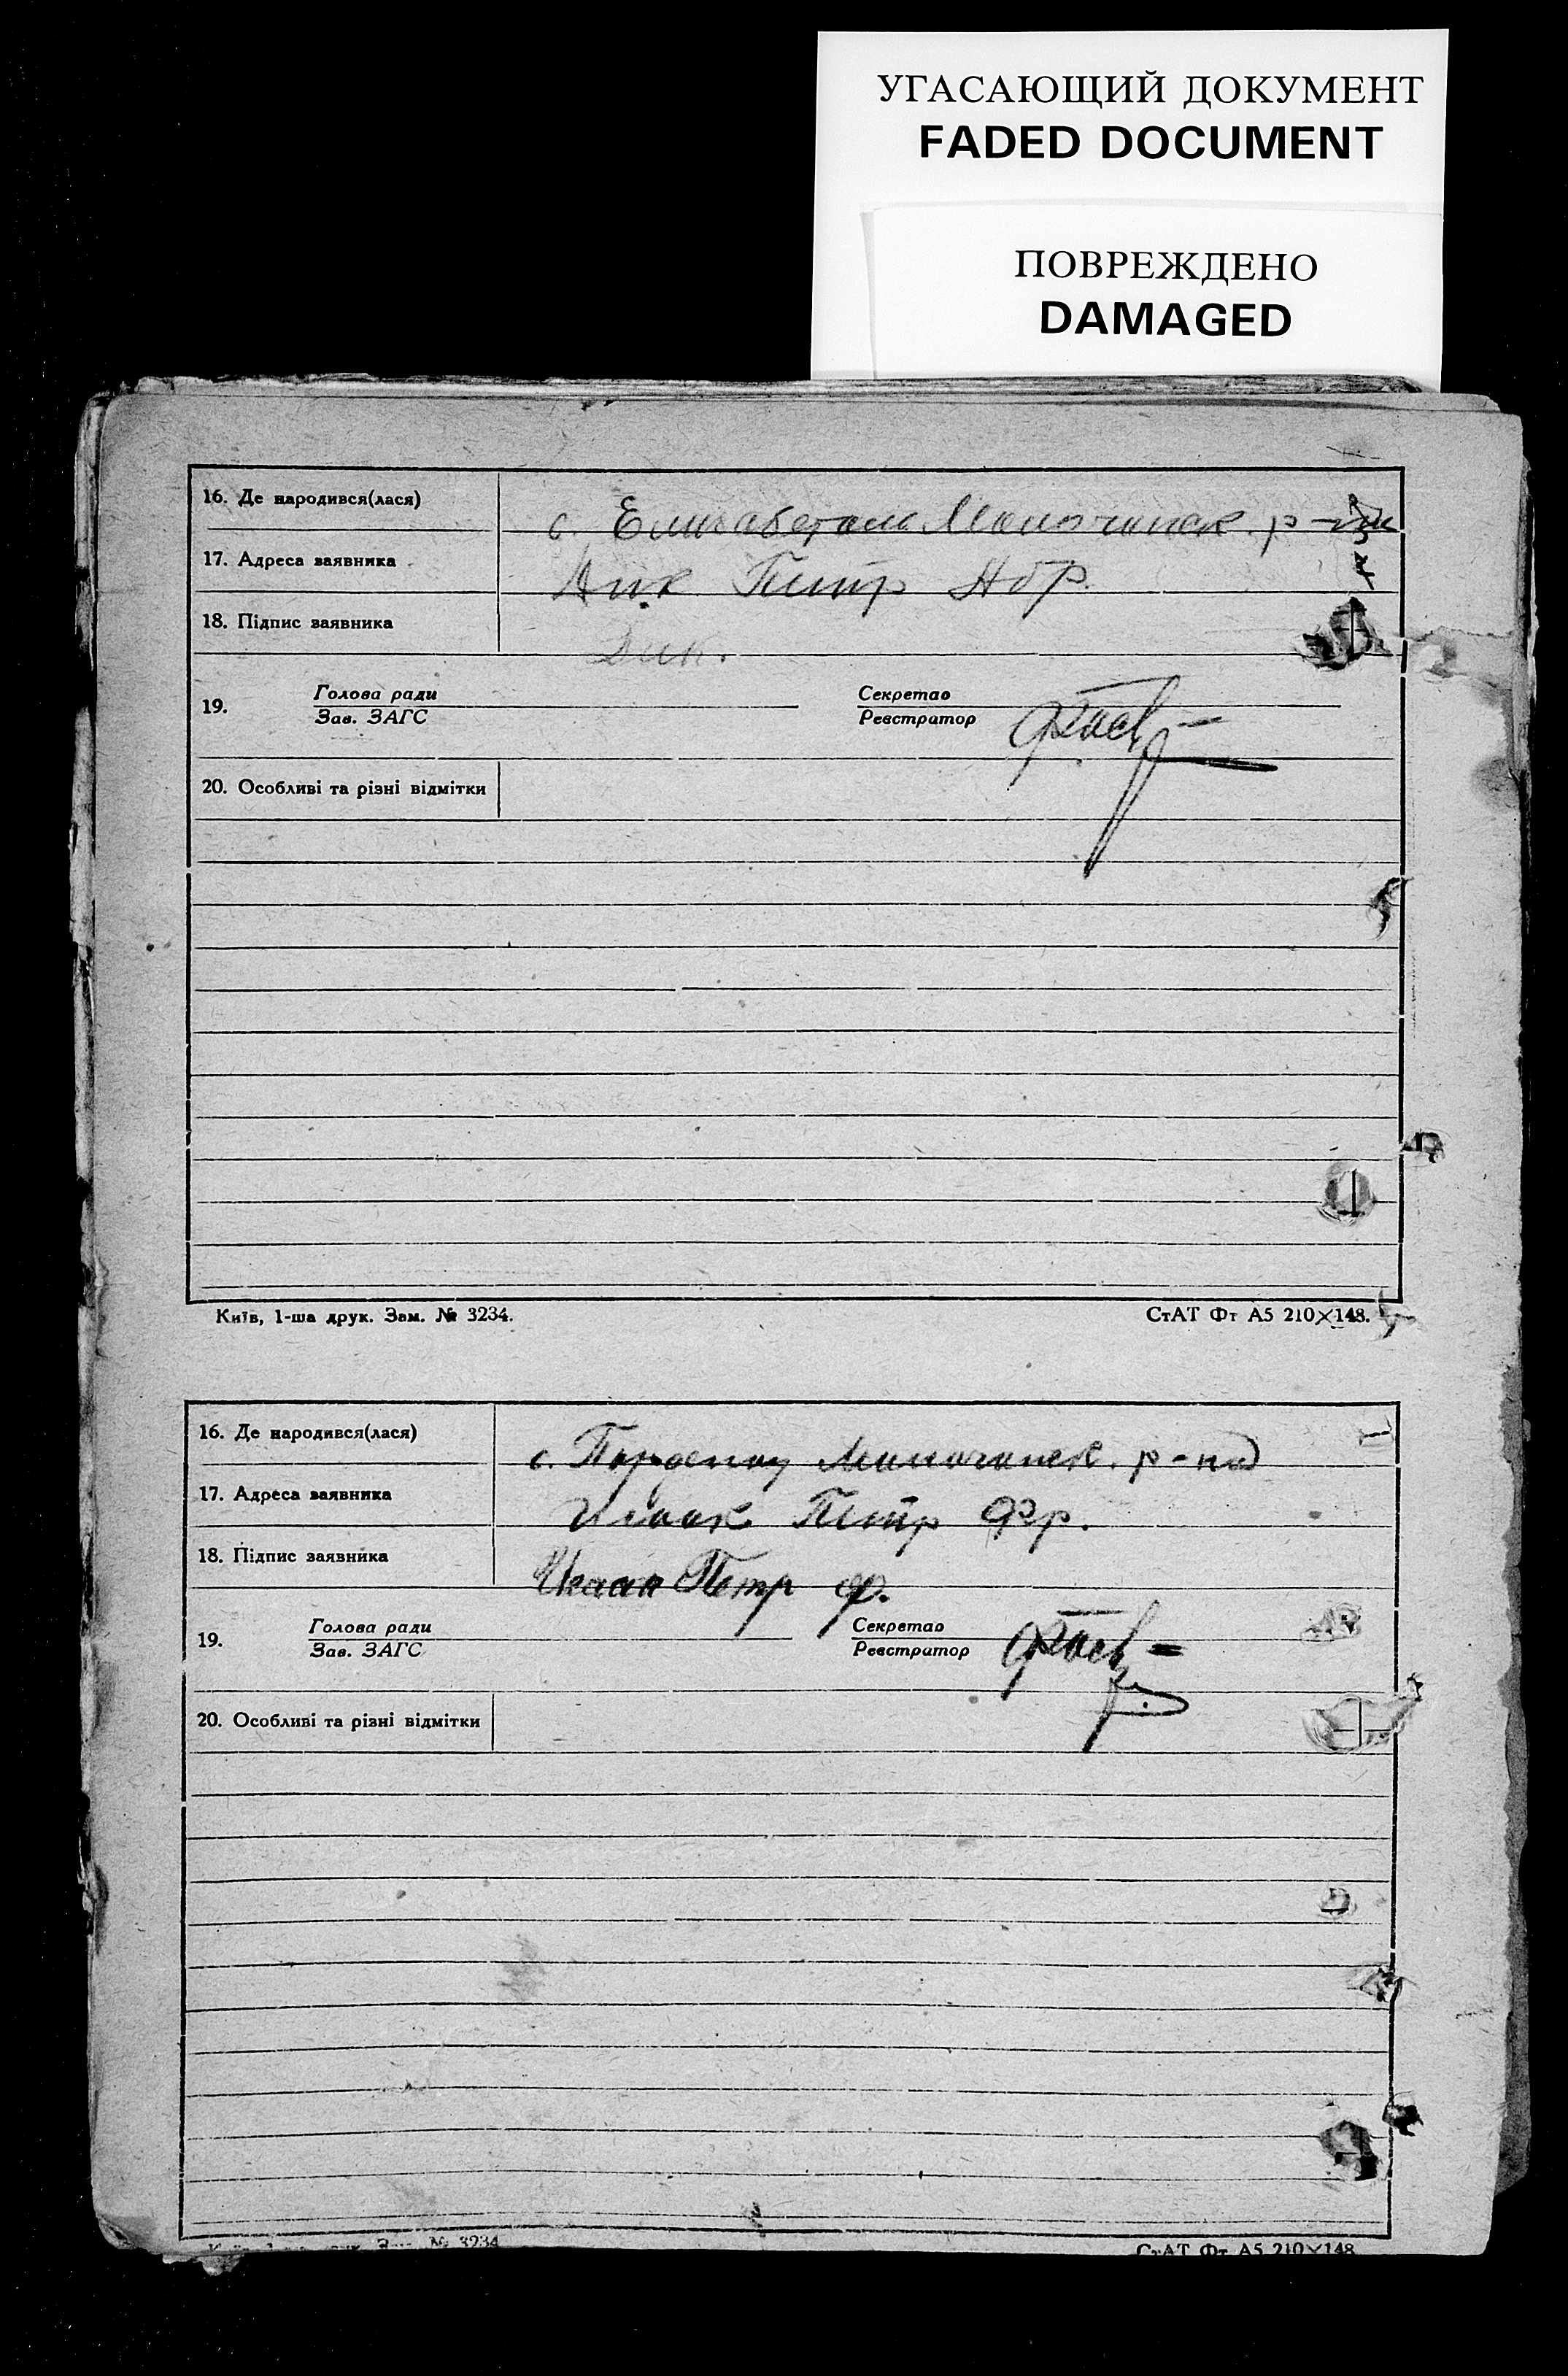 УГАСАЮЩИЙ ДОКУМЕНТ
FADED DOCUMENT
ПОВРЕЖДЕНО
DAMAGED
16. Де народився(лася)
с. Елизабеталь р-на
17. Адреса заявника
Дик Петр Абр.
18. Підпис заявника
Дик.
19. Голова ради Секретар
Зав. ЗАГС Реєстратор
20. Особливі та різні відмітки
Київ, 1-ша друк. Зам. № 3234. СтАТ Фт А5 210×148.
16. Де народився(лася)
с. р-на
17. Адреса заявника
Исаак Петр Фр.
18. Підпис заявника
Исаак Петр Ф.
19. Голова ради Секретар
Зав. ЗАГС Реєстратор
20. Особливі та різні відмітки
№ 3234 СтАТ Фт А5 210×148